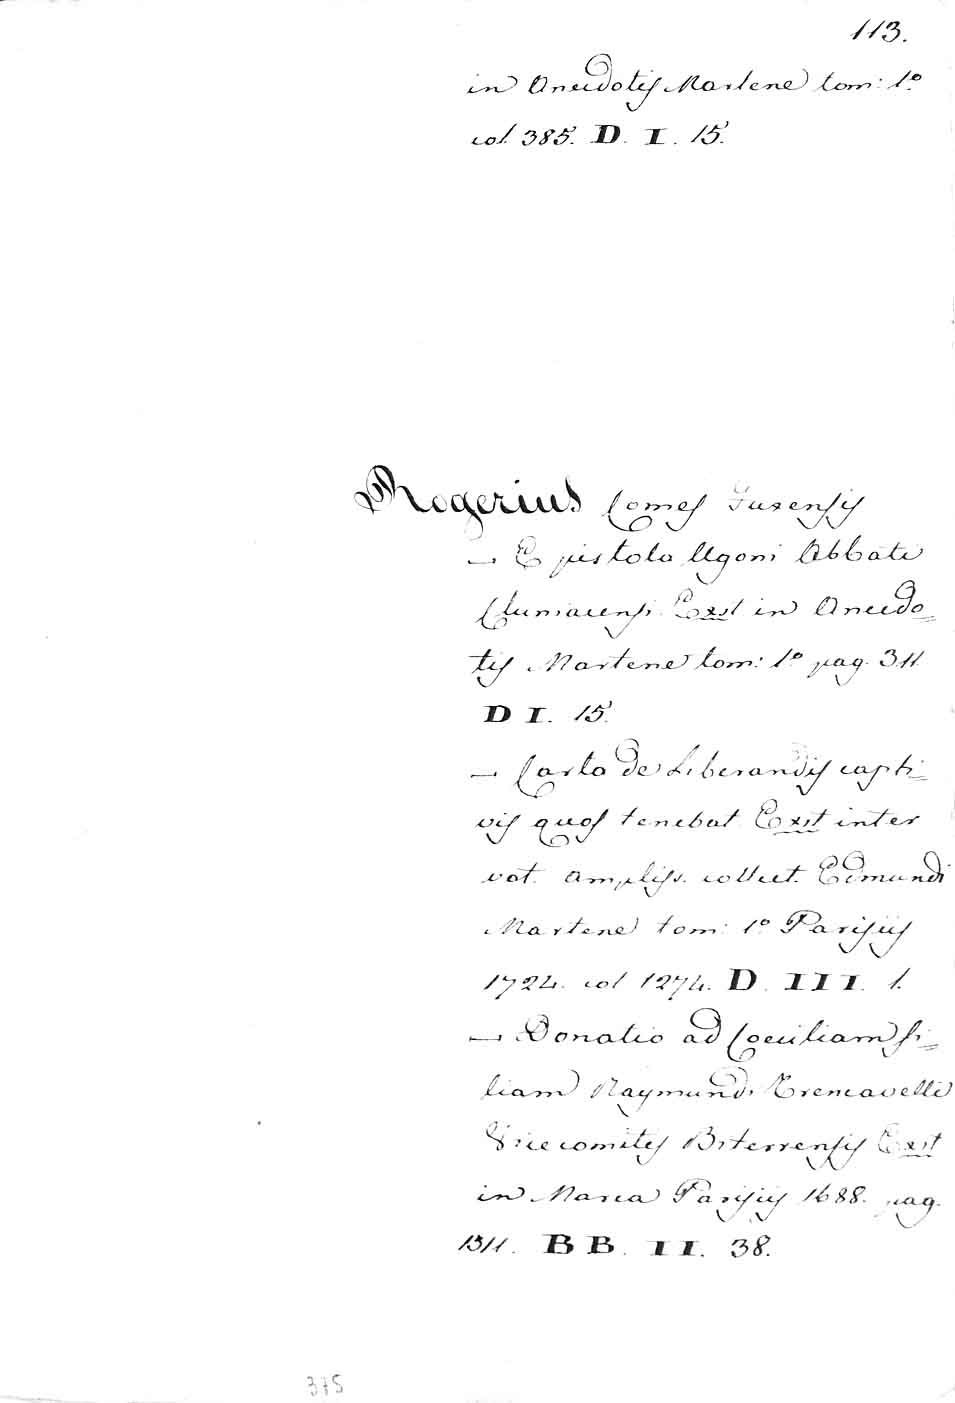 113.
in Anecdotis Martene tom: 1º
col. 385. D. I. 15.
Rogerius Comes Fuxensis
— Epistola Ugoni Abbati
Cluniacensi. Exst in Anecdo=
tis Martene tom: 1º pag. 311
D I. 15.
— Carta de Liberandis capti=
vis quos tenebat. Exst inter
vet. ampliss. collect. Edmundi
Martene tom: 1º Parisiis
1724. col 1274. D. III. 1.
— Donatio ad Coeciliam fi=
liam Raymundi Trencavelli
Vicecomitis Biterrensis Exst
in Marca Parisiis 1688. pag.
1311. BB. II. 38.
375